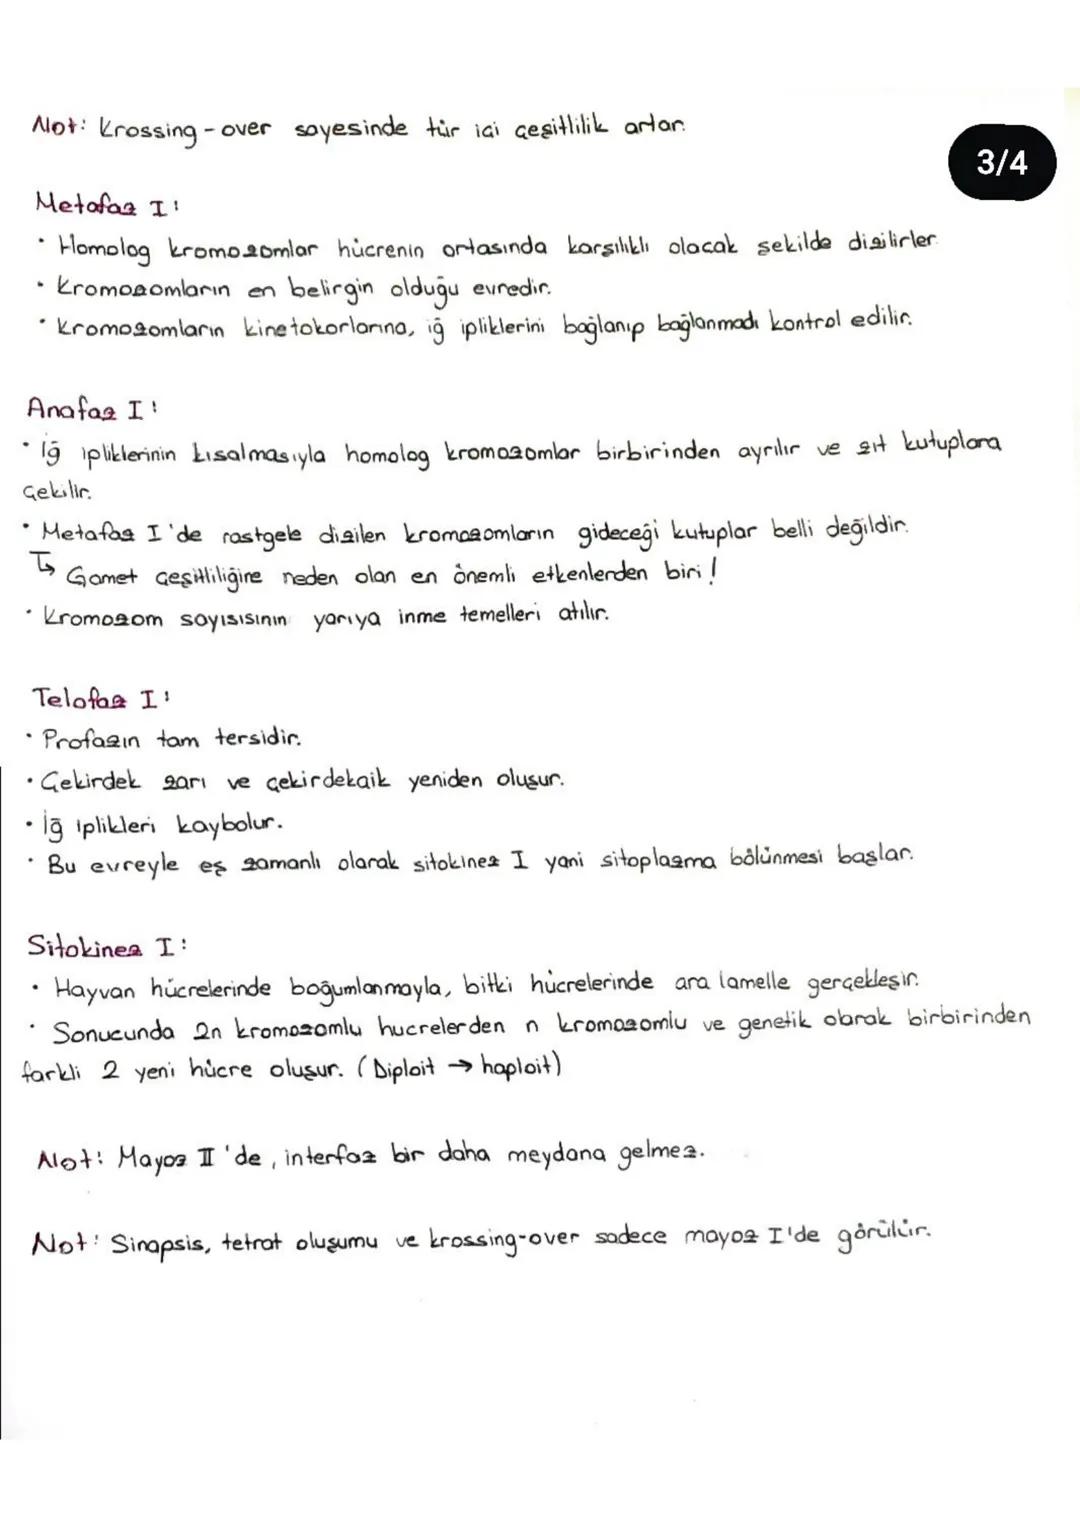 Not: Krossing-over sayesinde tür içi çeşitlilik artar.
3/4
Metafaz I:
• Homolog kromozomlar hücrenin ortasında karşılıklı olacak şekilde dizilirler.
• Kromozomların en belirgin olduğu evredir.
• Kromozomların kinetokorlarına, iğ ipliklerini bağlanıp bağlanmadı kontrol edilir.
Anafaz I:
• İğ ipliklerinin kısalmasıyla homolog kromozomlar birbirinden ayrılır ve zıt kutuplara
çekilir.
• Metafaz I'de rastgele dizilen kromozomların gideceği kutuplar belli değildir.
↳ Gamet çeşitliliğine neden olan en önemli etkenlerden biri!
• Kromozom sayısısının yarıya inme temelleri atılır.
Telofaz I:
• Profazın tam tersidir.
• Çekirdek zarı ve çekirdekçik yeniden oluşur.
• İğ iplikleri kaybolur.
• Bu evreyle eş zamanlı olarak sitokinez I yani sitoplazma bölünmesi başlar.
Sitokinez I:
• Hayvan hücrelerinde boğumlanmayla, bitki hücrelerinde ara lamelle gerçekleşir.
• Sonucunda 2n kromozomlu hucrelerden n kromozomlu ve genetik olarak birbirinden
farkli 2 yeni hücre oluşur. (Diploit → haploit)
Not: Mayoz II'de, interfaz bir daha meydana gelmez.
Not: Sinapsis, tetrat oluşumu ve krossing-over sadece mayoz I'de görülür.